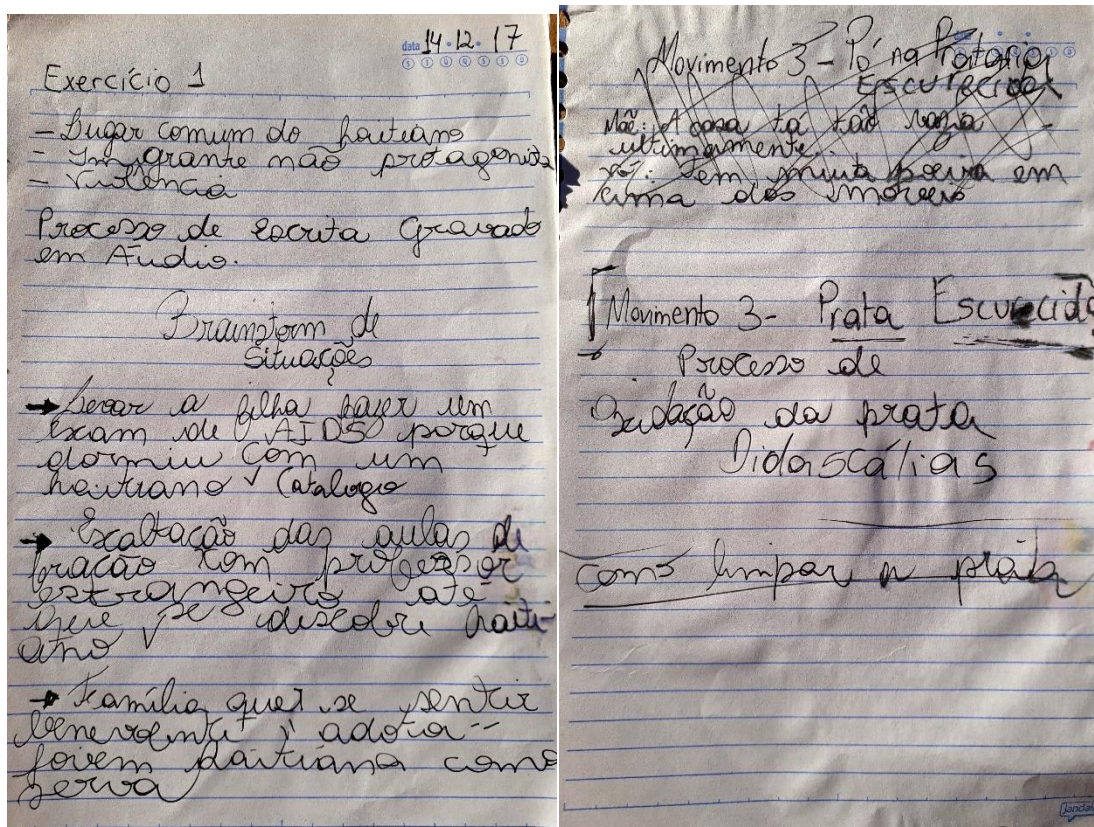 data 14·12·17
Exercício 1
- Lugar comum do haitiano
- Imigrante não protagonista
- Violência
Processo de escrita Gravado
em Áudio.
Brainstorm de
Situações
→ Levar a filha fazer um
exam de AIDS porque
dormiu com um
haitiano ✓ Catalogo
→ Exaltação das aulas de
com professor
estrangeiro até
que se descobre haiti-
ano
→ Família quer se sentir
benevolente, adota --
jovem haitiana como
serva
Movimento 3 - Pó na Prataria
Escurecida
Mãe: A casa tá tão
ultimamente.
Tem muita poeira em
cima dos
Movimento 3- Prata Escurecida
Processo de
Oxidação da prata
Didascálias
como limpar a prata